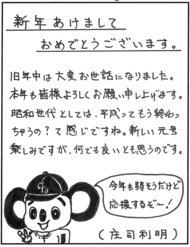 新年あけまして
おめでとうございます。
旧年中は大変お世話になりました。
本年も皆様よろしくお願い申し上げます。
昭和世代としては、平成ってもう終わっ
ちゃうの?て感じですね。新しい元号
楽しみですが、何でも良いとも思うのです。
今年も弱そうだけど
応援するぞ〜!
(庄司利明)